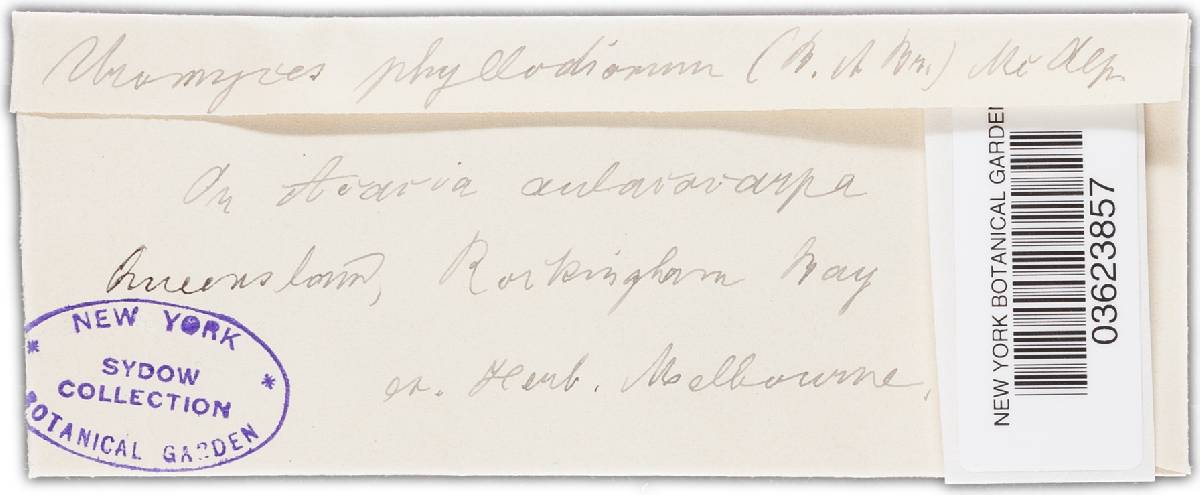 Uromyces phyllodiorum (B. et Br.) Mc Alp.
On Acacia aulacocarpa
Queensland, Rockingham Bay
ex. Herb. Melbourne.
NEW YORK
SYDOW
COLLECTION
BOTANICAL GARDEN
NEW YORK BOTANICAL GARDEN
03623857